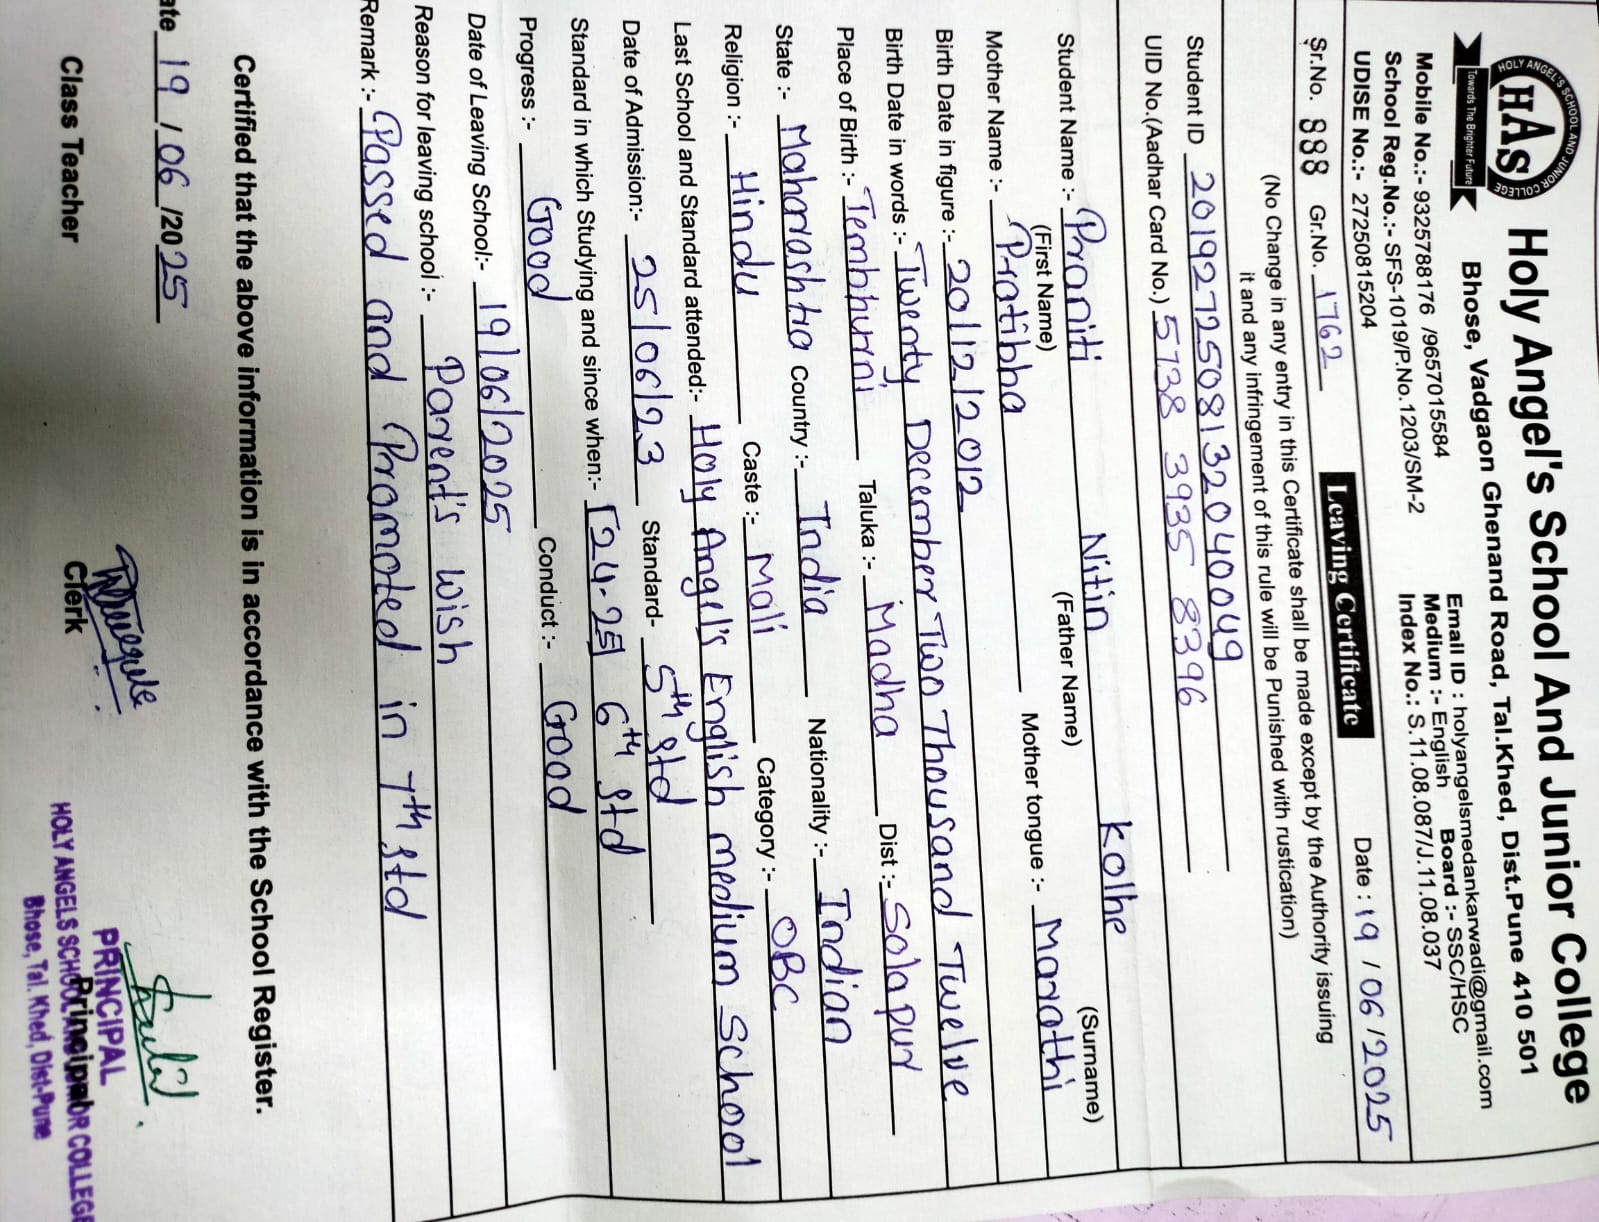 HOLY ANGEL'S SCHOOL AND JUNIOR COLLEGE
HAS
Towards The Brighter Future
Holy Angel's School And Junior College
Bhose, Vadgaon Ghenand Road, Tal.Khed, Dist.Pune 410 501
Mobile No.:- 9325788176 /9657015584 Email ID : holyangelsmedankarwadi@gmail.com
School Reg.No.:- SFS-1019/P.No.1203/SM-2 Medium :- English Board :- SSC/HSC
UDISE No.:- 27250815204 Index No.: S.11.08.087/J.11.08.037
Sr.No. 888 Gr.No. 1762 Leaving Certificate Date : 19 / 06 / 2025
(No Change in any entry in this Certificate shall be made except by the Authority issuing
it and any infringement of this rule will be Punished with rustication)
Student ID 2019272508132040049
UID No.(Aadhar Card No.) 5738 3935 8396
Student Name :- Praniti Nitin Kolhe
(First Name) (Father Name) (Surname)
Mother Name :- Pratibha Mother tongue :- Marathi
Birth Date in figure :- 20/12/2012
Birth Date in words :- Twenty December Two Thousand Twelve
Place of Birth :- Tembhurni Taluka :- Madha Dist :- Solapur
State :- Maharashtra Country :- India Nationality :- Indian
Religion :- Hindu Caste :- Mali Category :- OBC
Last School and Standard attended:- Holy Angel's English medium School
Date of Admission:- 25/06/23 Standard- 5th std
Standard in which Studying and since when:- [24-25] 6th std
Progress :- Good Conduct :- Good
Date of Leaving School:- 19/06/2025
Reason for leaving school :- Parent's wish
Remark :- Passed and Promoted in 7th std
Certified that the above information is in accordance with the School Register.
ate 19 / 06 /2025
Class Teacher Clerk Principal
PRINCIPAL
HOLY ANGELS SCHOOL AND JUNIOR COLLEGE
Bhose, Tal. Khed, Dist-Pune